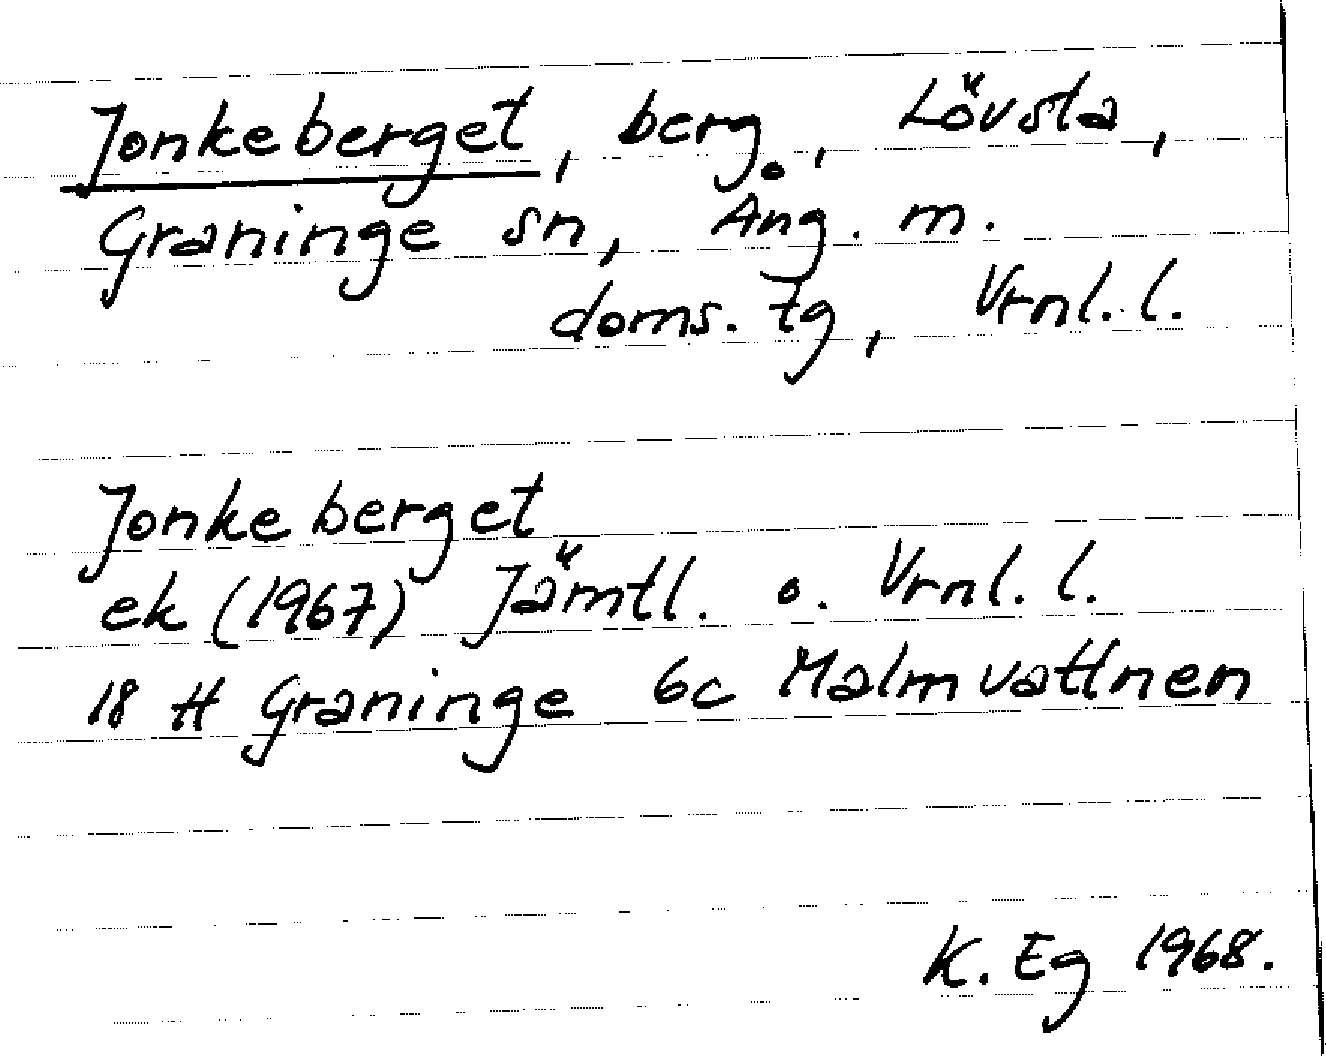 Jonkeberget, berg, Lövsta,
Graninge sn, Ång. m.
doms. tg, Vrnl. l.
Jonkeberget
ek (1967) Jämtl. o. Vrnl. l.
18 H Graninge 6c Malmvattnen
K. Eg 1968.